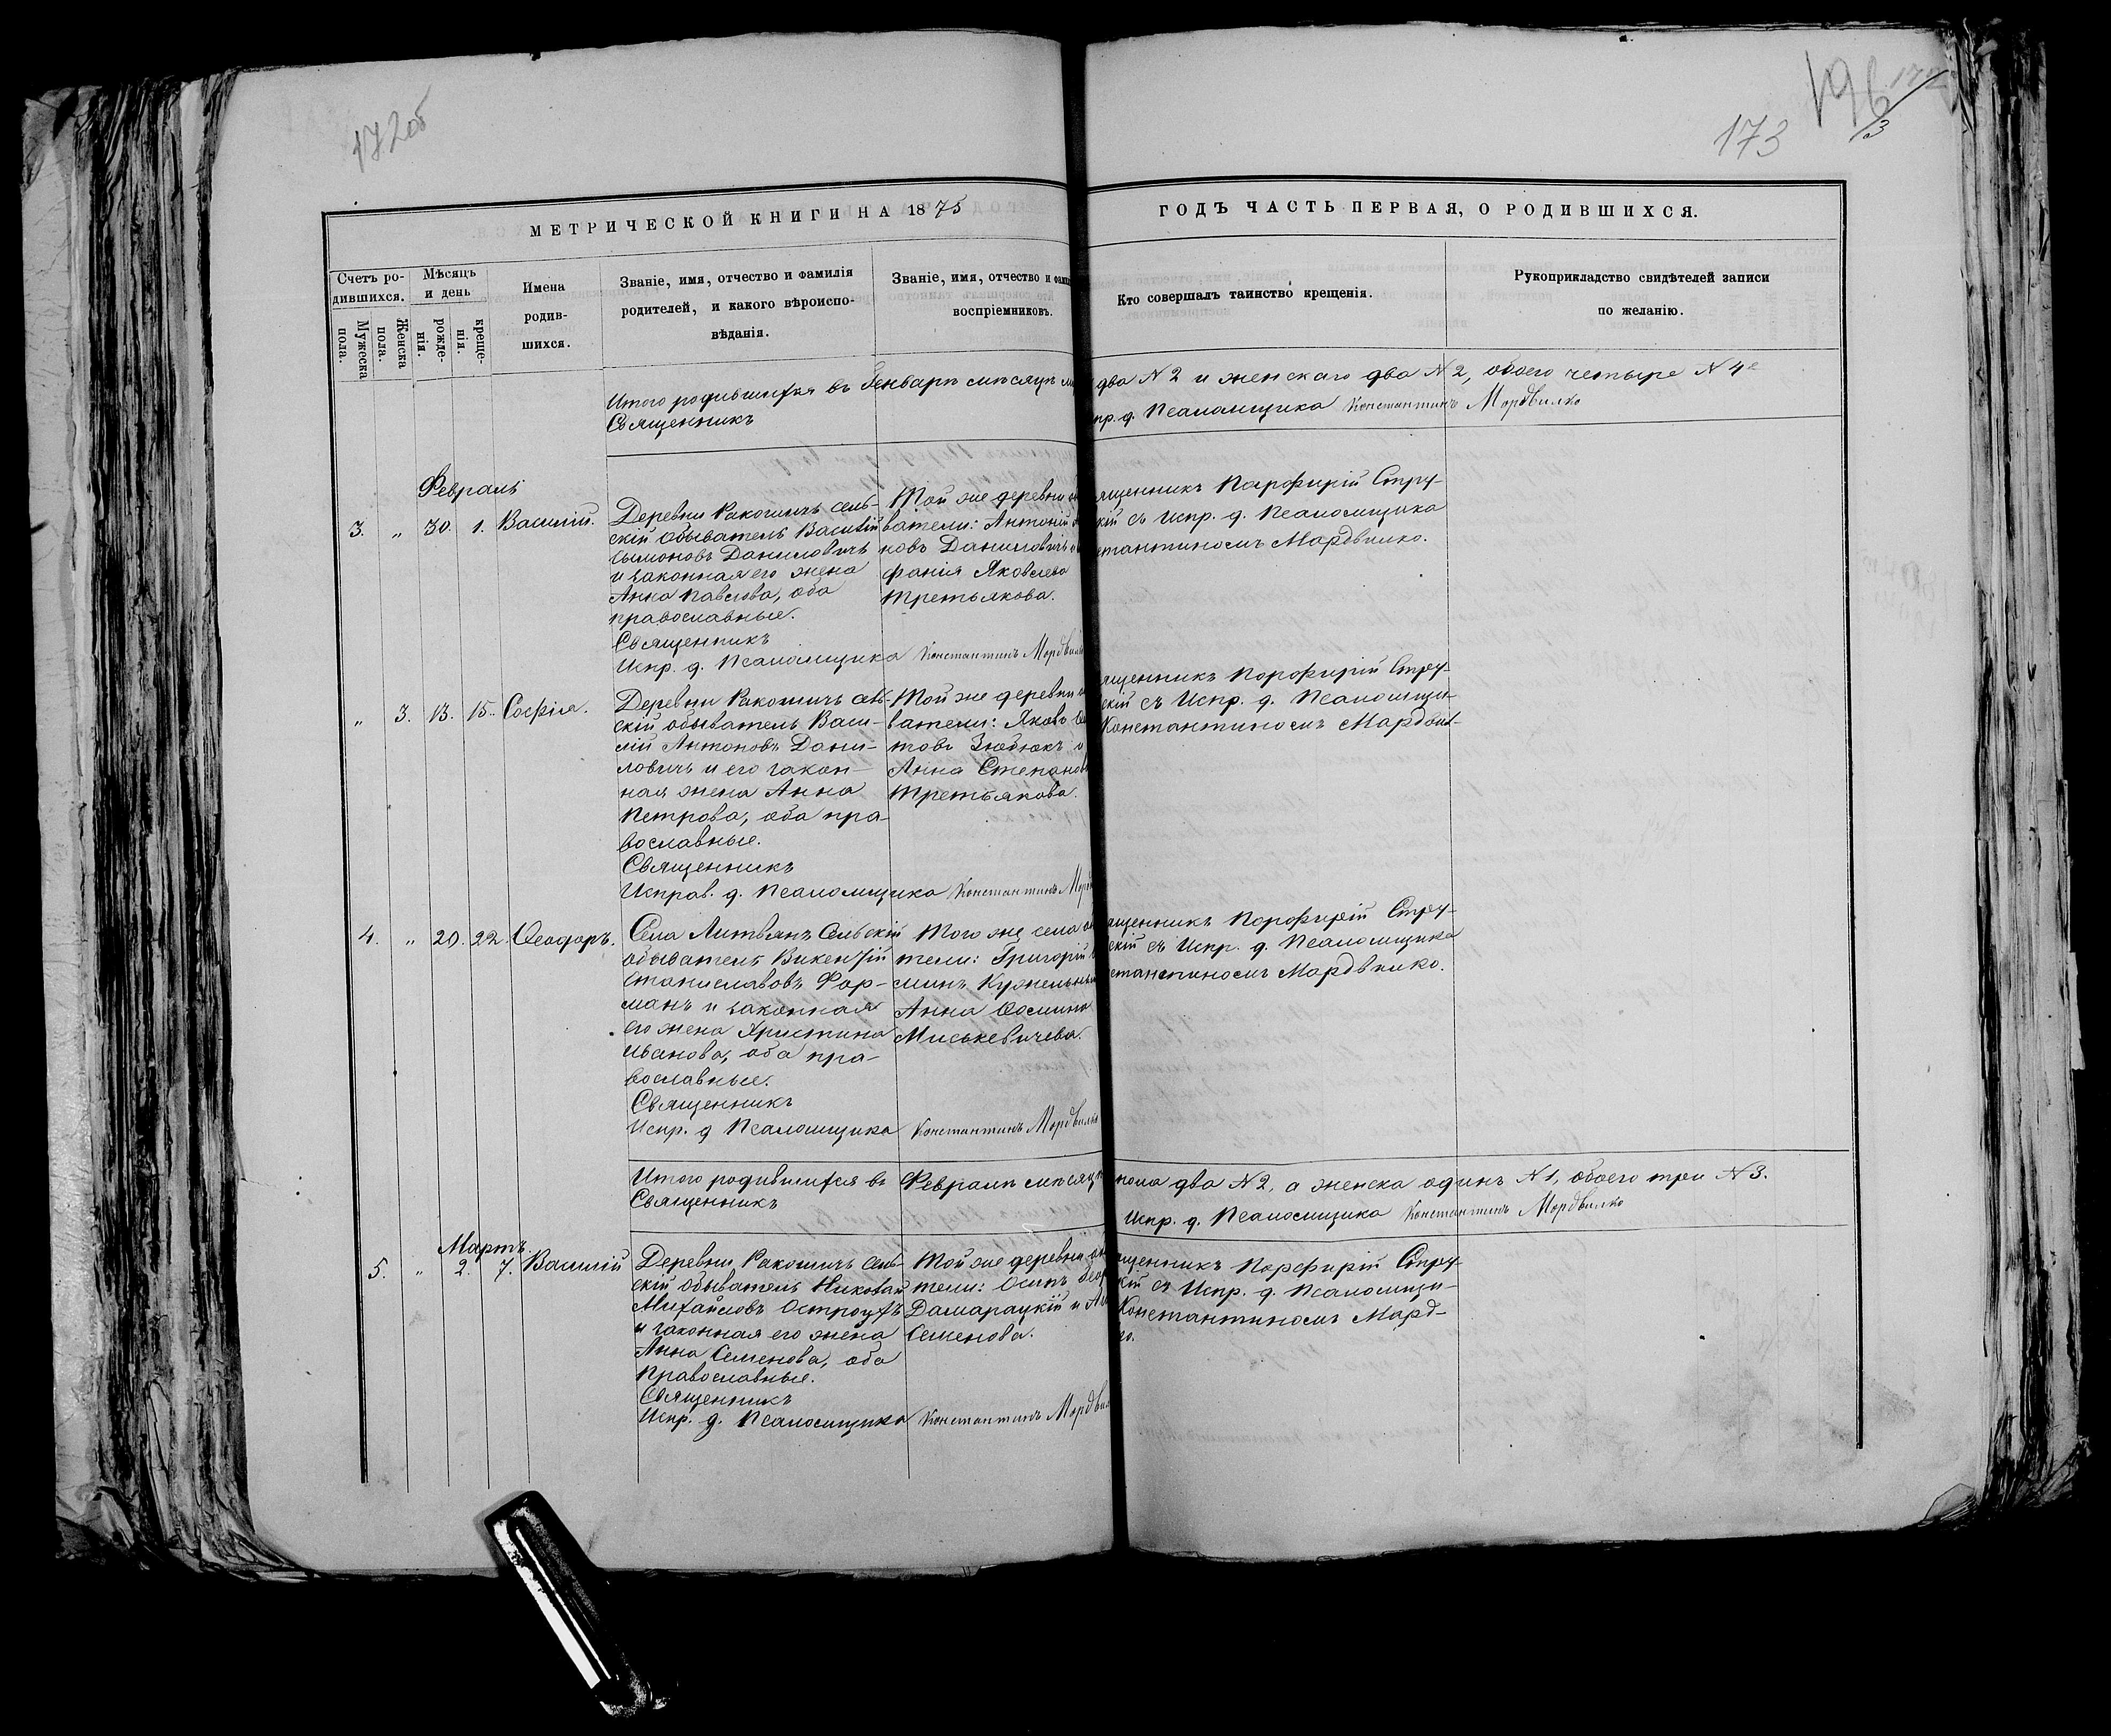 172об
173
196
3
МЕТРИЧЕСКОЙ КНИГИ НА 1875
ГОДЪ ЧАСТЬ ПЕРВАЯ, О РОДИВШИХСЯ.
Счетъ ро-
дившихся.
Мужеска
пола.
Женска
пола.
Мѣсяцъ
и день
рожде-
нія.
креще-
нія.
Имена
родив-
шихся.
Званіе, имя, отчество и фамилія
родителей, и какого вѣроиспо-
вѣданія.
Званіе, имя, отчество и фами
воспріемниковъ.
Кто совершалъ таинство крещенія.
Рукоприкладство свидѣтелей записи
по желанію.
Итого родившихся въ Генварѣ мѣсяцѣ
два N 2 и женскаго два N 2, обоего четыре N 4е
Священникъ
пр. д. Псаломщика Константинъ Мордвилко
Февраль
3. „ 30. 1. Василій.
Деревни Ракошичъ сель-
скій обыватель Василій
Сымоновъ Даниловичъ
и законная его жена
Анна Павлова, оба
православные.
Священникъ
Испр. д. Псаломщика Константинъ Мордвилк
Той же деревни
ватели: Антоній
новъ Даниловичъ и
фанія Яковлева
Третьякова.
ященникъ Порфирій Стру-
кій съ Испр. д. Псаломщика
стантиномъ Мордвилко.
„ 3. 13. 15. Софія.
Деревни Ракошичъ сель-
скій обыватель Васи-
лій Антоновъ Дани-
ловичъ и его закон-
ная жена Анна
Петрова, оба пра-
вославные.
Священникъ
Исправ. д. Псаломщика Константинъ Морд
Той же деревни
ватели: Яковъ
товъ Зюбюкъ и
Анна Степанов
Третьякова.
ященникъ Порфирій Стру-
скій съ Испр. д. Псаломщи-
Константиномъ Мордвил-
4. „ 20. 22. Ѳеодоръ.
Села Литвянъ Сельскій
обыватель Викентій
Станиславовъ Фор-
манъ и законная
его жена Христина
Иванова, оба пра-
вославные.
Священникъ
Испр. д. Псаломщика Константинъ Мордвилко
Того же села
тели: Григорій
минъ Кужельны
Анна Ѳомина
Миськевичева.
ященникъ Порфирій Стру-
скій съ Испр. д. Псаломщика
стантиномъ Мордвилко.
Итого родившихся въ Февралѣ мѣсяцѣ
пола два N 2, а женска одинъ N 1, обоего три N 3.
Священникъ
Испр. д. Псаломщика Константинъ Мордвилко
Мартъ.
5. „ 2. 7. Василій
Деревни Ракошичъ сель-
скій обыватель Николай
Михайловъ Остроухъ
и законная его жена
Анна Семенова, оба
Православные.
Священникъ
Испр. д. Псаломщика Константинъ Мордвил
Той же деревни
тели: Осипъ
Дамарацкій и
Семенова.
ященникъ Порфирій Стру-
кій съ Испр. д. Псаломщи-
Константиномъ Морд-
ко.